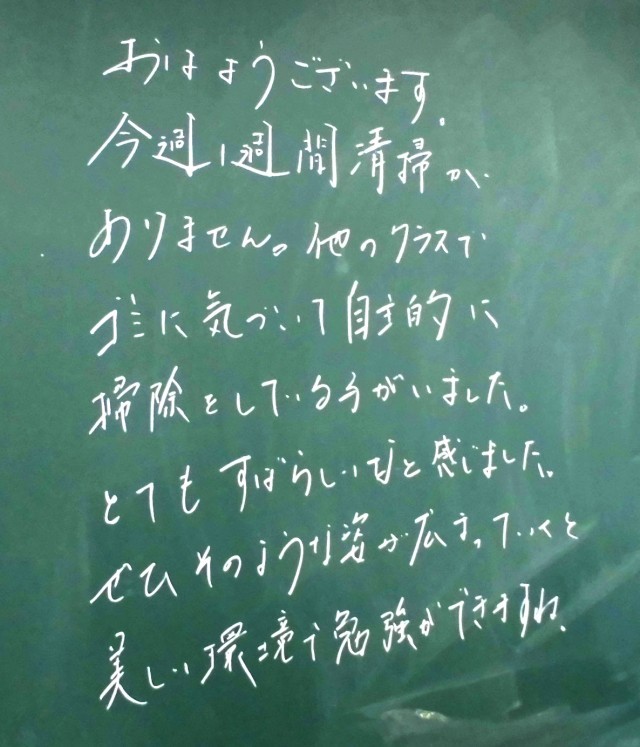 おはようございます。
今週1週間清掃が
ありません。他のクラスで
ゴミに気づいて自主的に
掃除をしている子がいました。
とてもすばらしいなと感じました。
ぜひそのような姿が広まっていくと
美しい環境で勉強ができますね。